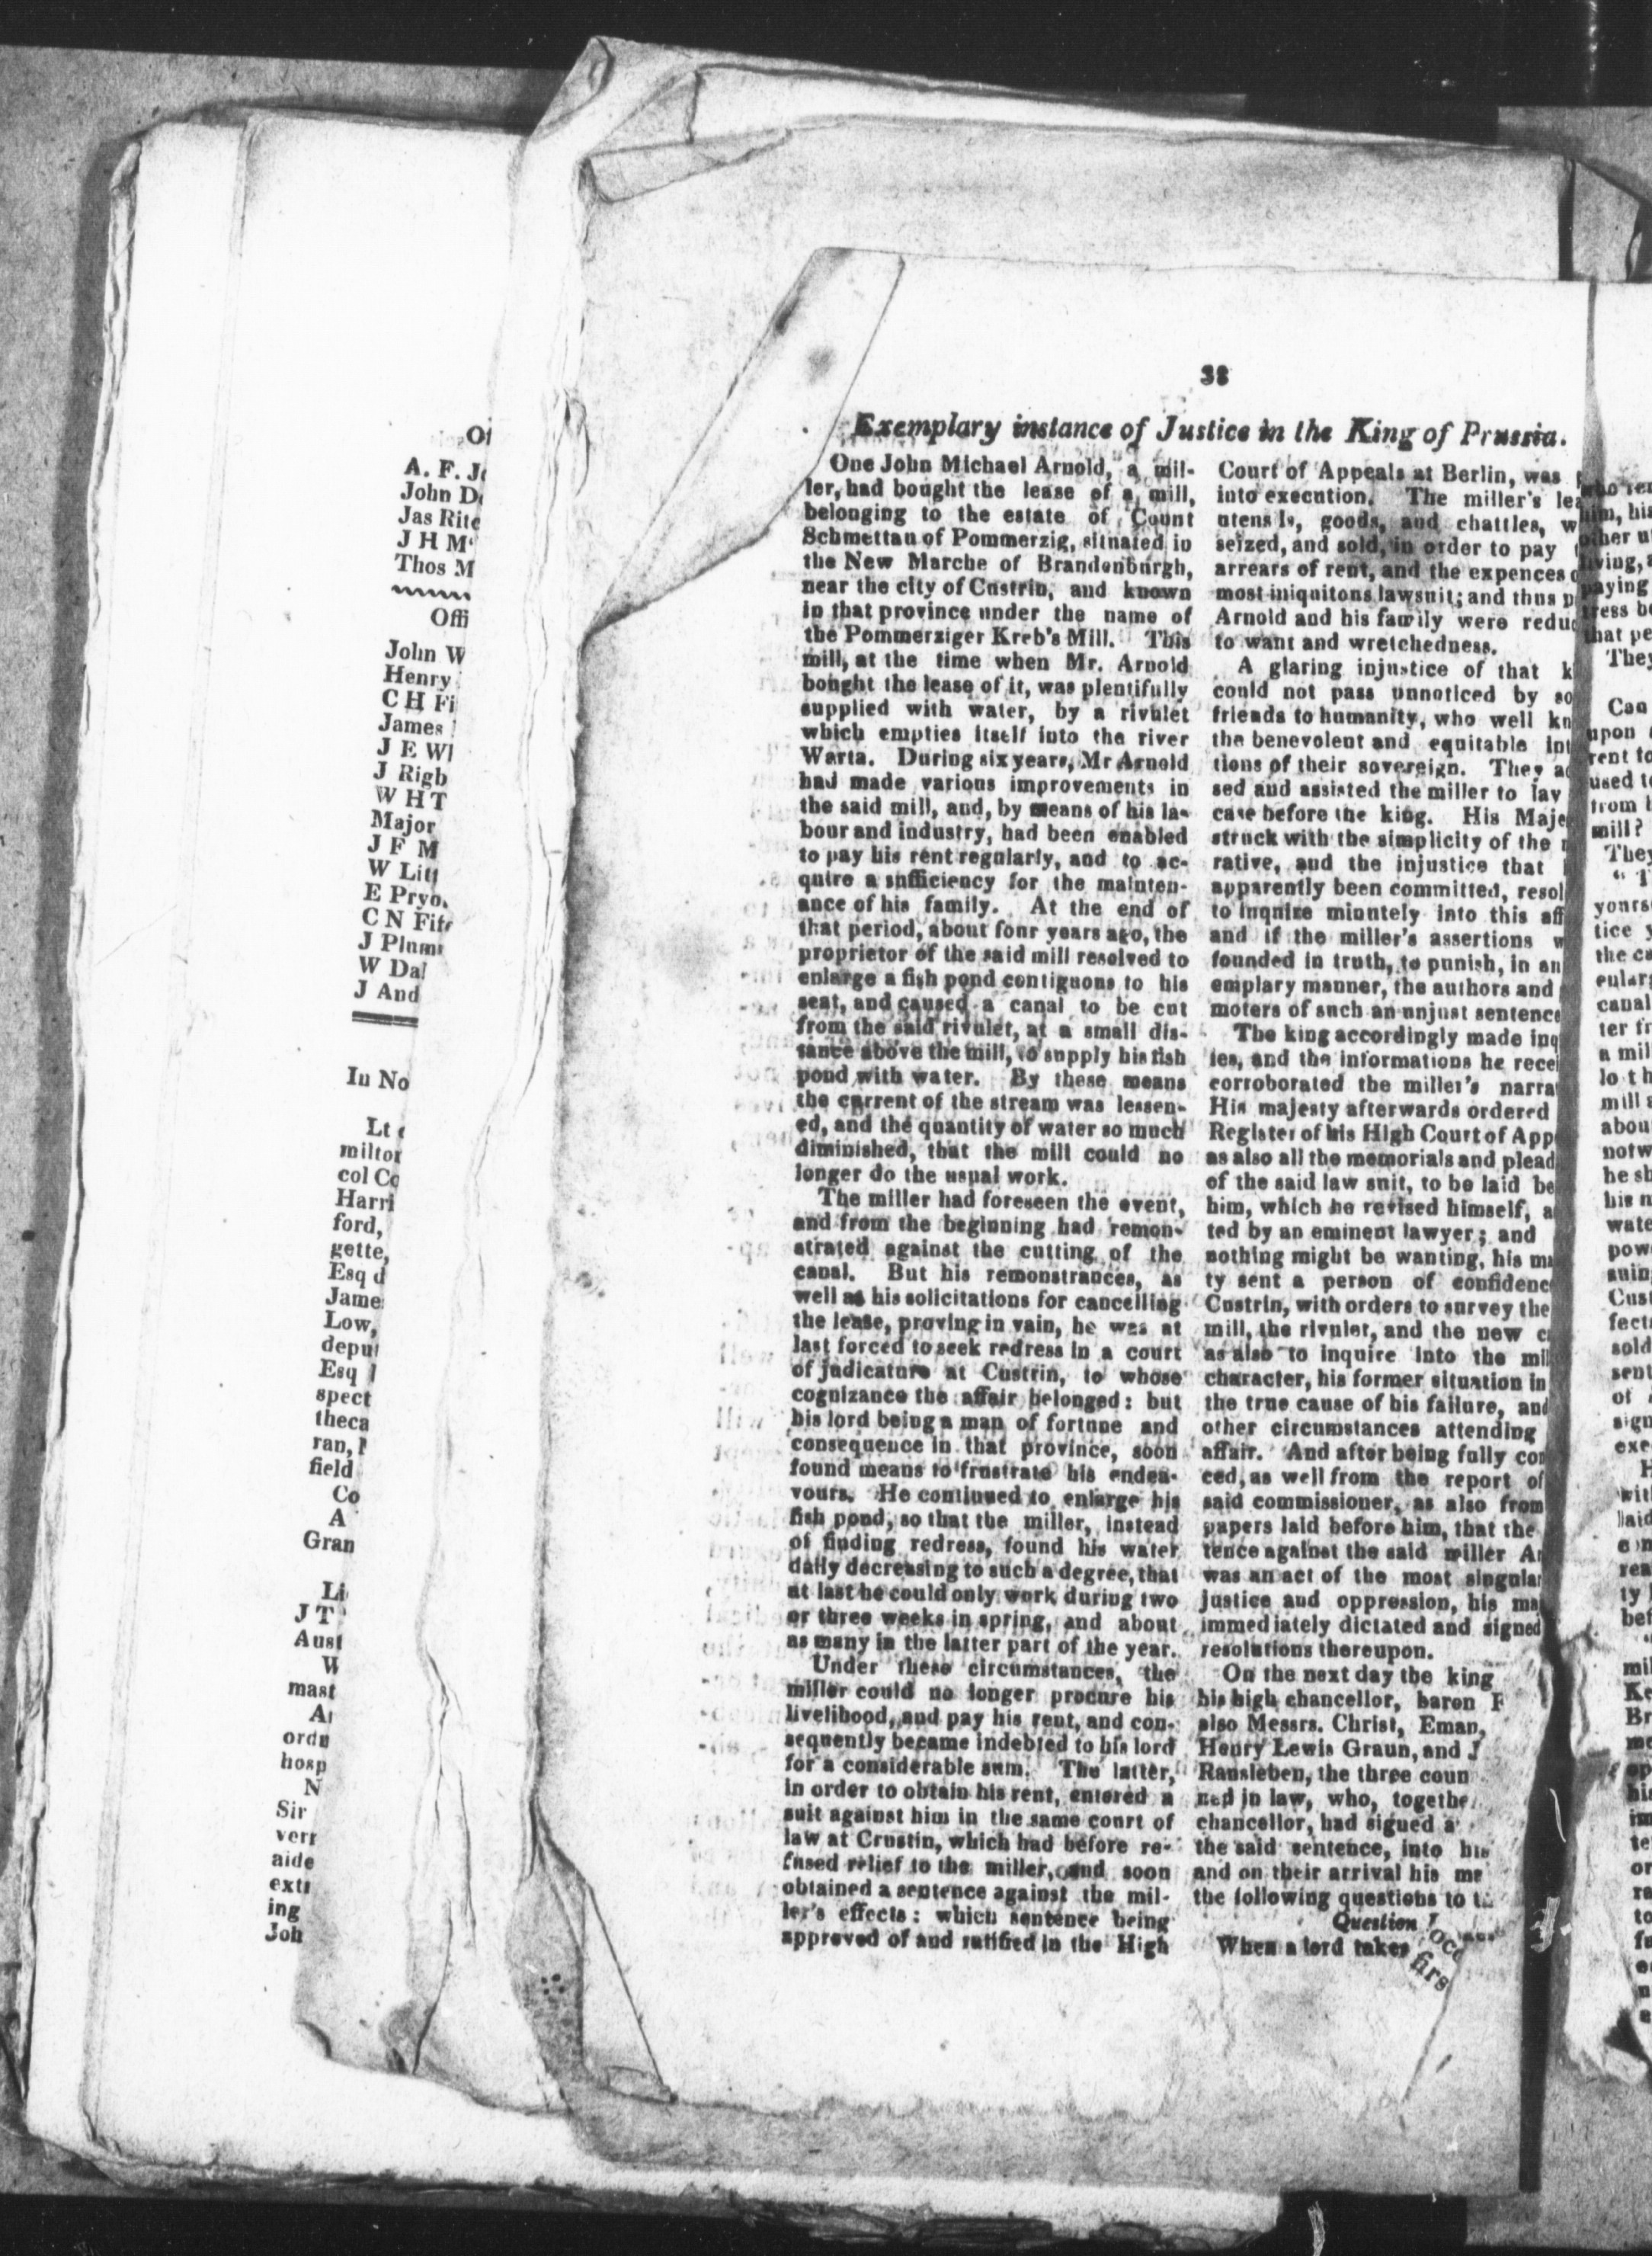 Of
A. F. J
John D
Jas Rite
J H M'
Thos M
Offi
John W
Henry
C H Fi
James
J E W
J Rigb
W H T
Major
J F M
W Litt
E Pryo
C N Fif
J Plum
W Dal
J And
In No
Lt
milton
col Co
Harri
ford,
gette,
Esq d
Jame
Low,
deput
Esq
spect
theca
ran,
field
Co
A
Gran
Li
J T
Aust
W
mast
A
ordn
hosp
N
Sir
verr
aide
ext
ing
Joh
38
Exemplary instance of Justice in the King of Prussia.
One John Michael Arnold, a mil-
ler, had bought the lease of a mill,
belonging to the estate of Count
Schmettau of Pommerzig, situated in
the New Marche of Brandenburgh,
near the city of Custrin, and known
in that province under the name of
the Pommerziger Kreb's Mill. This
mill, at the time when Mr. Arnold
bought the lease of it, was plentifully
supplied with water, by a rivulet
which empties itself into the river
Warta. During six years, Mr Arnold
had made various improvements in
the said mill, and, by means of his la-
bour and industry, had been enabled
to pay his rent regularly, and to ac-
quire a sufficiency for the mainten-
ance of his family. At the end of
that period, about four years ago, the
proprietor of the said mill resolved to
enlarge a fish pond contiguous to his
seat, and caused a canal to be cut
from the said rivulet, at a small dis-
tance above the mill, to supply his fish
pond with water. By these means
the current of the stream was lessen-
ed, and the quantity of water so much
diminished, that the mill could no
longer do the usual work.
The miller had foreseen the event,
and from the beginning had remon-
strated against the cutting of the
canal. But his remonstrances, as
well as his solicitations for cancelling
the lease, proving in vain, he was at
last forced to seek redress in a court
of judicature at Custrin, to whose
cognizance the affair belonged: but
his lord being a man of fortune and
consequence in that province, soon
found means to frustrate his endea-
vours. He continued to enlarge his
fish pond, so that the miller, instead
of finding redress, found his water
daily decreasing to such a degree, that
at last he could only work during two
or three weeks in spring, and about
as many in the latter part of the year.
Under these circumstances, the
miller could no longer procure his
livelihood, and pay his rent, and con-
sequently became indebted to his lord
for a considerable sum. The latter,
in order to obtain his rent, entered a
suit against him in the same court of
law at Crustin, which had before re-
fused relief to the miller, and soon
obtained a sentence against the mil-
ler's effects: which sentence being
approved of and ratified in the High
Court of Appeals at Berlin, was p
into execution. The miller's lea
utensls, goods, and chattles, w
seized, and sold, in order to pay
arrears of rent, and the expences o
most iniquitons lawsuit; and thus p
Arnold and his family were reduc
to want and wretchedness.
A glaring injustice of that k
could not pass unnoticed by so
friends to humanity, who well kn
the benevolent and equitable int
tions of their sovereign. They ad
sed and assisted the miller to lay
case before the king. His Maje
struck with the simplicity of the
rative, and the injustice that
apparently been committed, resol
to inquire minutely into this aff
and if the miller's assertions w
founded in truth, to punish, in an
emplary manner, the authors and
moters of such an unjust sentence
The king accordingly made inq
ies, and the informations he recei
corroborated the miller's narra
His majesty afterwards ordered
Register of his High Court of App
as also all the memorials and plead
of the said law suit, to be laid be
him, which he revised himself, a
ted by an eminent lawyer; and
nothing might be wanting, his ma
ty sent a person of confidence
Custrin, with orders to survey the
mill, the rivulet, and the new c
as also to inquire into the mil
character, his former situation in
the true cause of his failure, and
other circumstances attending
affair. And after being fully con
ced, as well from the report of
said commissioner, as also from
papers laid before him, that the
tence against the said miller Ar
was an act of the most singular
justice and oppression, his ma
immediately dictated and signed
resolutions thereupon.
On the next day the king
his high chancellor, baron F
also Messrs. Christ, Eman,
Henry Lewis Graun, and J
Ransleben, the three coun
ned in law, who, together
chancellor, had signed a
the said sentence, into his
and on their arrival his
the following questions to
Question
When a lord takes
firs
him, his
other
living,
paying
tress
that pe
They
Can
upon
rent to
used t
from
mill?
They
yours
tice y
the ca
enlarg
canal
ter fr
a mil
lo th
mill
abou
notw
he sh
his n
wate
pow
Cust
fect
sold
sent
of
sign
exe